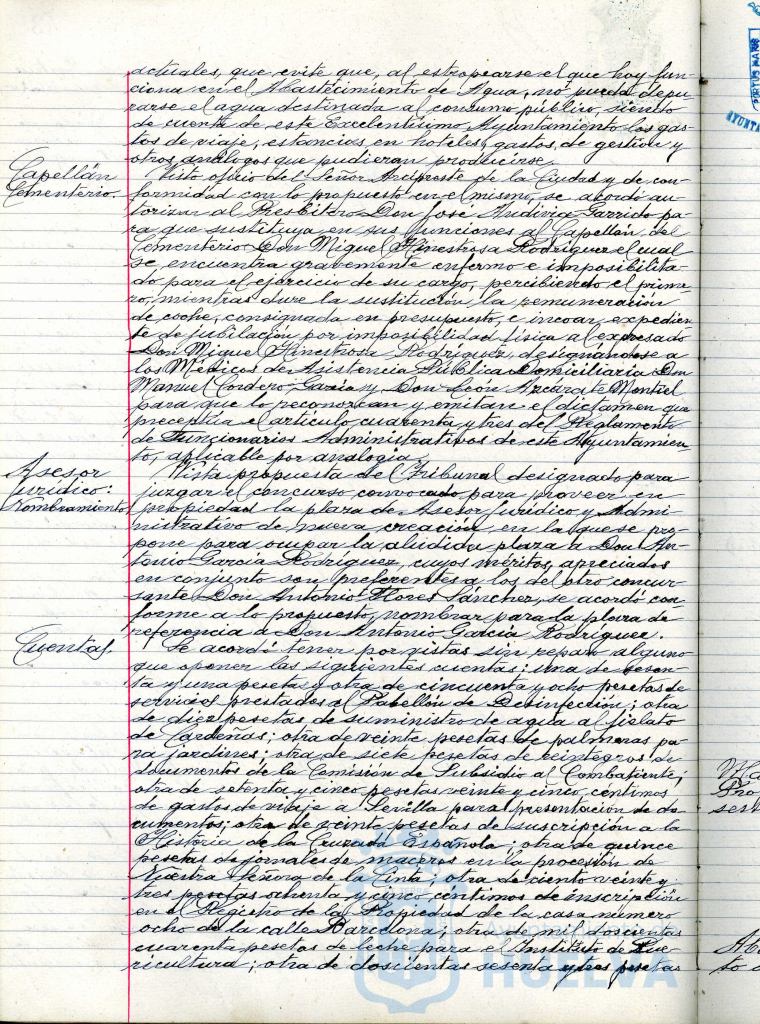 actuales, que evite que, al estropearse el que hoy fun-
ciona en el Abastecimiento de Agua, no pueda depu-
rarse el agua destinada al consumo público, siendo
de cuenta de este Excelentísimo Ayuntamiento los gas-
tos de viaje, estancias en hoteles, gastos de gestión y
otros análogos que pudieran producirse.
Capellán
Cementerio.
Visto oficio del Señor Arcipreste de la Ciudad y de con-
formidad con lo propuesto en el mismo, se acordó au-
torizar al Presbítero Don José Andivia Garrido pa-
ra que sustituya en sus funciones al Capellán del
Cementerio Don Miguel Hinestrosa Rodríguez el cual
se encuentra gravemente enfermo e imposibilita-
do para el ejercicio de su cargo, percibiendo el prime-
ro, mientras dure la sustitución la remuneración
de coche, consignada en presupuesto, e incoar expedien-
te de jubilación por imposibilidad física al expresado
Don Miguel Hinestrosa Rodríguez, designándose a
los Médicos de Asistencia Pública Domiciliaria Don
Manuel Cordero García y Don León Azcárate Montiel
para que lo reconozcan y emitan el dictamen que
preceptúa el artículo cuarenta y tres del Reglamento
de Funcionarios Administrativos de este Ayuntamien-
to, aplicable por analogía.
Asesor
Jurídico:
Nombramiento
Vista propuesta del Tribunal designado para
juzgar el concurso convocado para proveer en
propiedad la plaza de Asesor Jurídico y Admi-
nistrativo de nueva creación en la que se pro-
pone para ocupar la aludida plaza a Don An-
tonio García Rodríguez, cuyos méritos apreciados
en conjunto son preferentes a los del otro concur-
sante Don Antonio Flores Sánchez, se acordó con-
forme a lo propuesto, nombrar para la plaza de
referencia a Don Antonio García Rodríguez.
Cuentas.
Se acordó tener por vistas sin reparo alguno
que oponer las siguientes cuentas: una de sesen-
ta y una pesetas y otra de cincuenta y ocho pesetas de
servicios prestados al Pabellón de Desinfección; otra
de diez pesetas de suministro de agua al fielato
de Cardenas; otra de veinte pesetas de palmeras pa-
ra jardines; otra de siete pesetas de reintegros de
documentos de la Comisión de Subsidio al Combatiente;
otra de setenta y cinco pesetas veinte y cinco céntimos
de gastos de viaje a Sevilla para presentación de do-
cumentos; otra de veinte pesetas de suscripción a la
Historia de la Cruzada Española; otra de quince
pesetas de jornales de maceros en la procesión de
Nuestra Señora de la Cinta; otra de ciento veinte y
tres pesetas ochenta y cinco céntimos de inscripción
en el Registro de la Propiedad de la casa número
ocho de la calle Barcelona; otra de mil doscientas
cuarenta pesetas de leche para el Instituto de Pue-
ricultura; otra de doscientas sesenta y tres pesetas
HUELVA